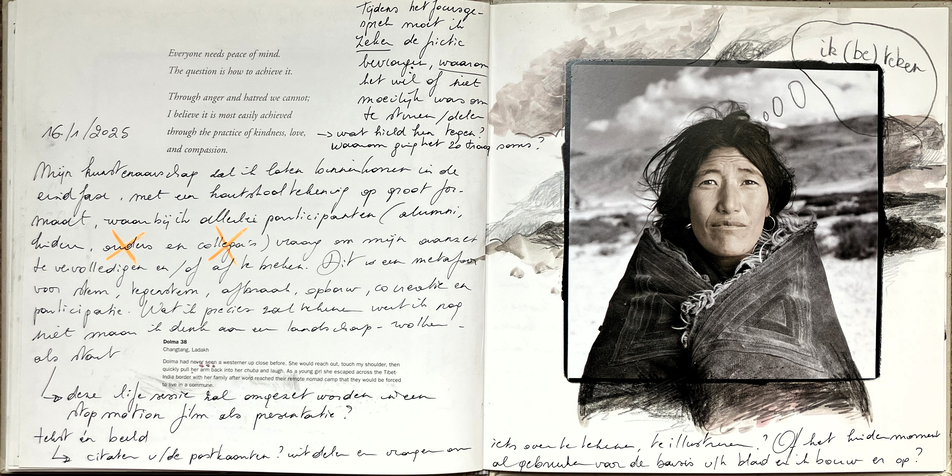 Tijdens het focusge-
sprek moet ik
zeker de fictie
bevragen, waarom
het wil of niet
moeilijk was om
te sturen / delen
→ wat hield hen tegen?
waarom ging het zo traag soms?
Everyone needs peace of mind.
The question is how to achieve it.
Through anger and hatred we cannot;
I believe it is most easily achieved
through the practice of kindness, love,
and compassion.
16/1/2025
Mijn kunstenaarschap zal ik laten binnenkomen in de
eindfase, met een houtskooltekening op groot for-
maat, waarbij ik allerlei participanten (alumni,
leiden, ouders en collega's) vraag om mijn aanzet
te vervolledigen en/of af te breken. Dit is een metafoor
voor stem, tegenstem, afbraak, opbouw, cocreatie en
participatie. Wat ik precies zal tekenen weet ik nog
niet maar ik denk aan een landschap - wolken -
als start
Dolma 38
Changtang, Ladakh
Dolma had never seen a westerner up close before. She would reach out, touch my shoulder, then
quickly pull her arm back into her chuba and laugh. As a young girl she escaped across the Tibet-
India border with her family after word reached their remote nomad camp that they would be forced
to live in a commune.
↳ deze life sessie zal omgezet worden in een
stop motion film als presentatie?
tekst én beeld
↳ citaten v/de postkaarten? uitdelen en vragen om
ik (be)teken
iets over te tekenen, te illustreren? Of het leidenmoment
al gebruiken voor de basis v/h blad en ik bouw er op?